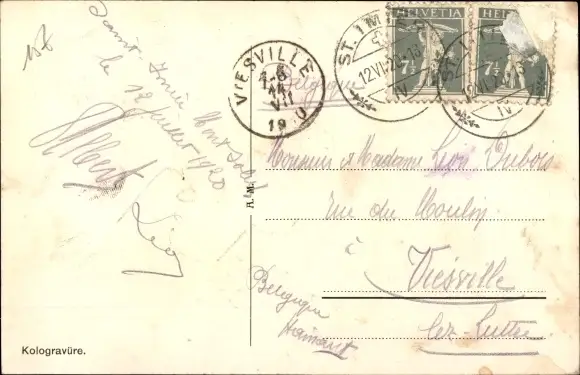 Saint Imier Mont Soleil
le 12 juillet 1920
Albert
Léon
HELVETIA
7½
7½
ST. IMIER
12.VII.20
VIESVILLE
VII
19
Belgique
Monsieur & Madame Léon Dubois
rue du Moulin
à
Viesville
lez-Luttre
Belgique
Hainaut
A. M.
Kologravüre.